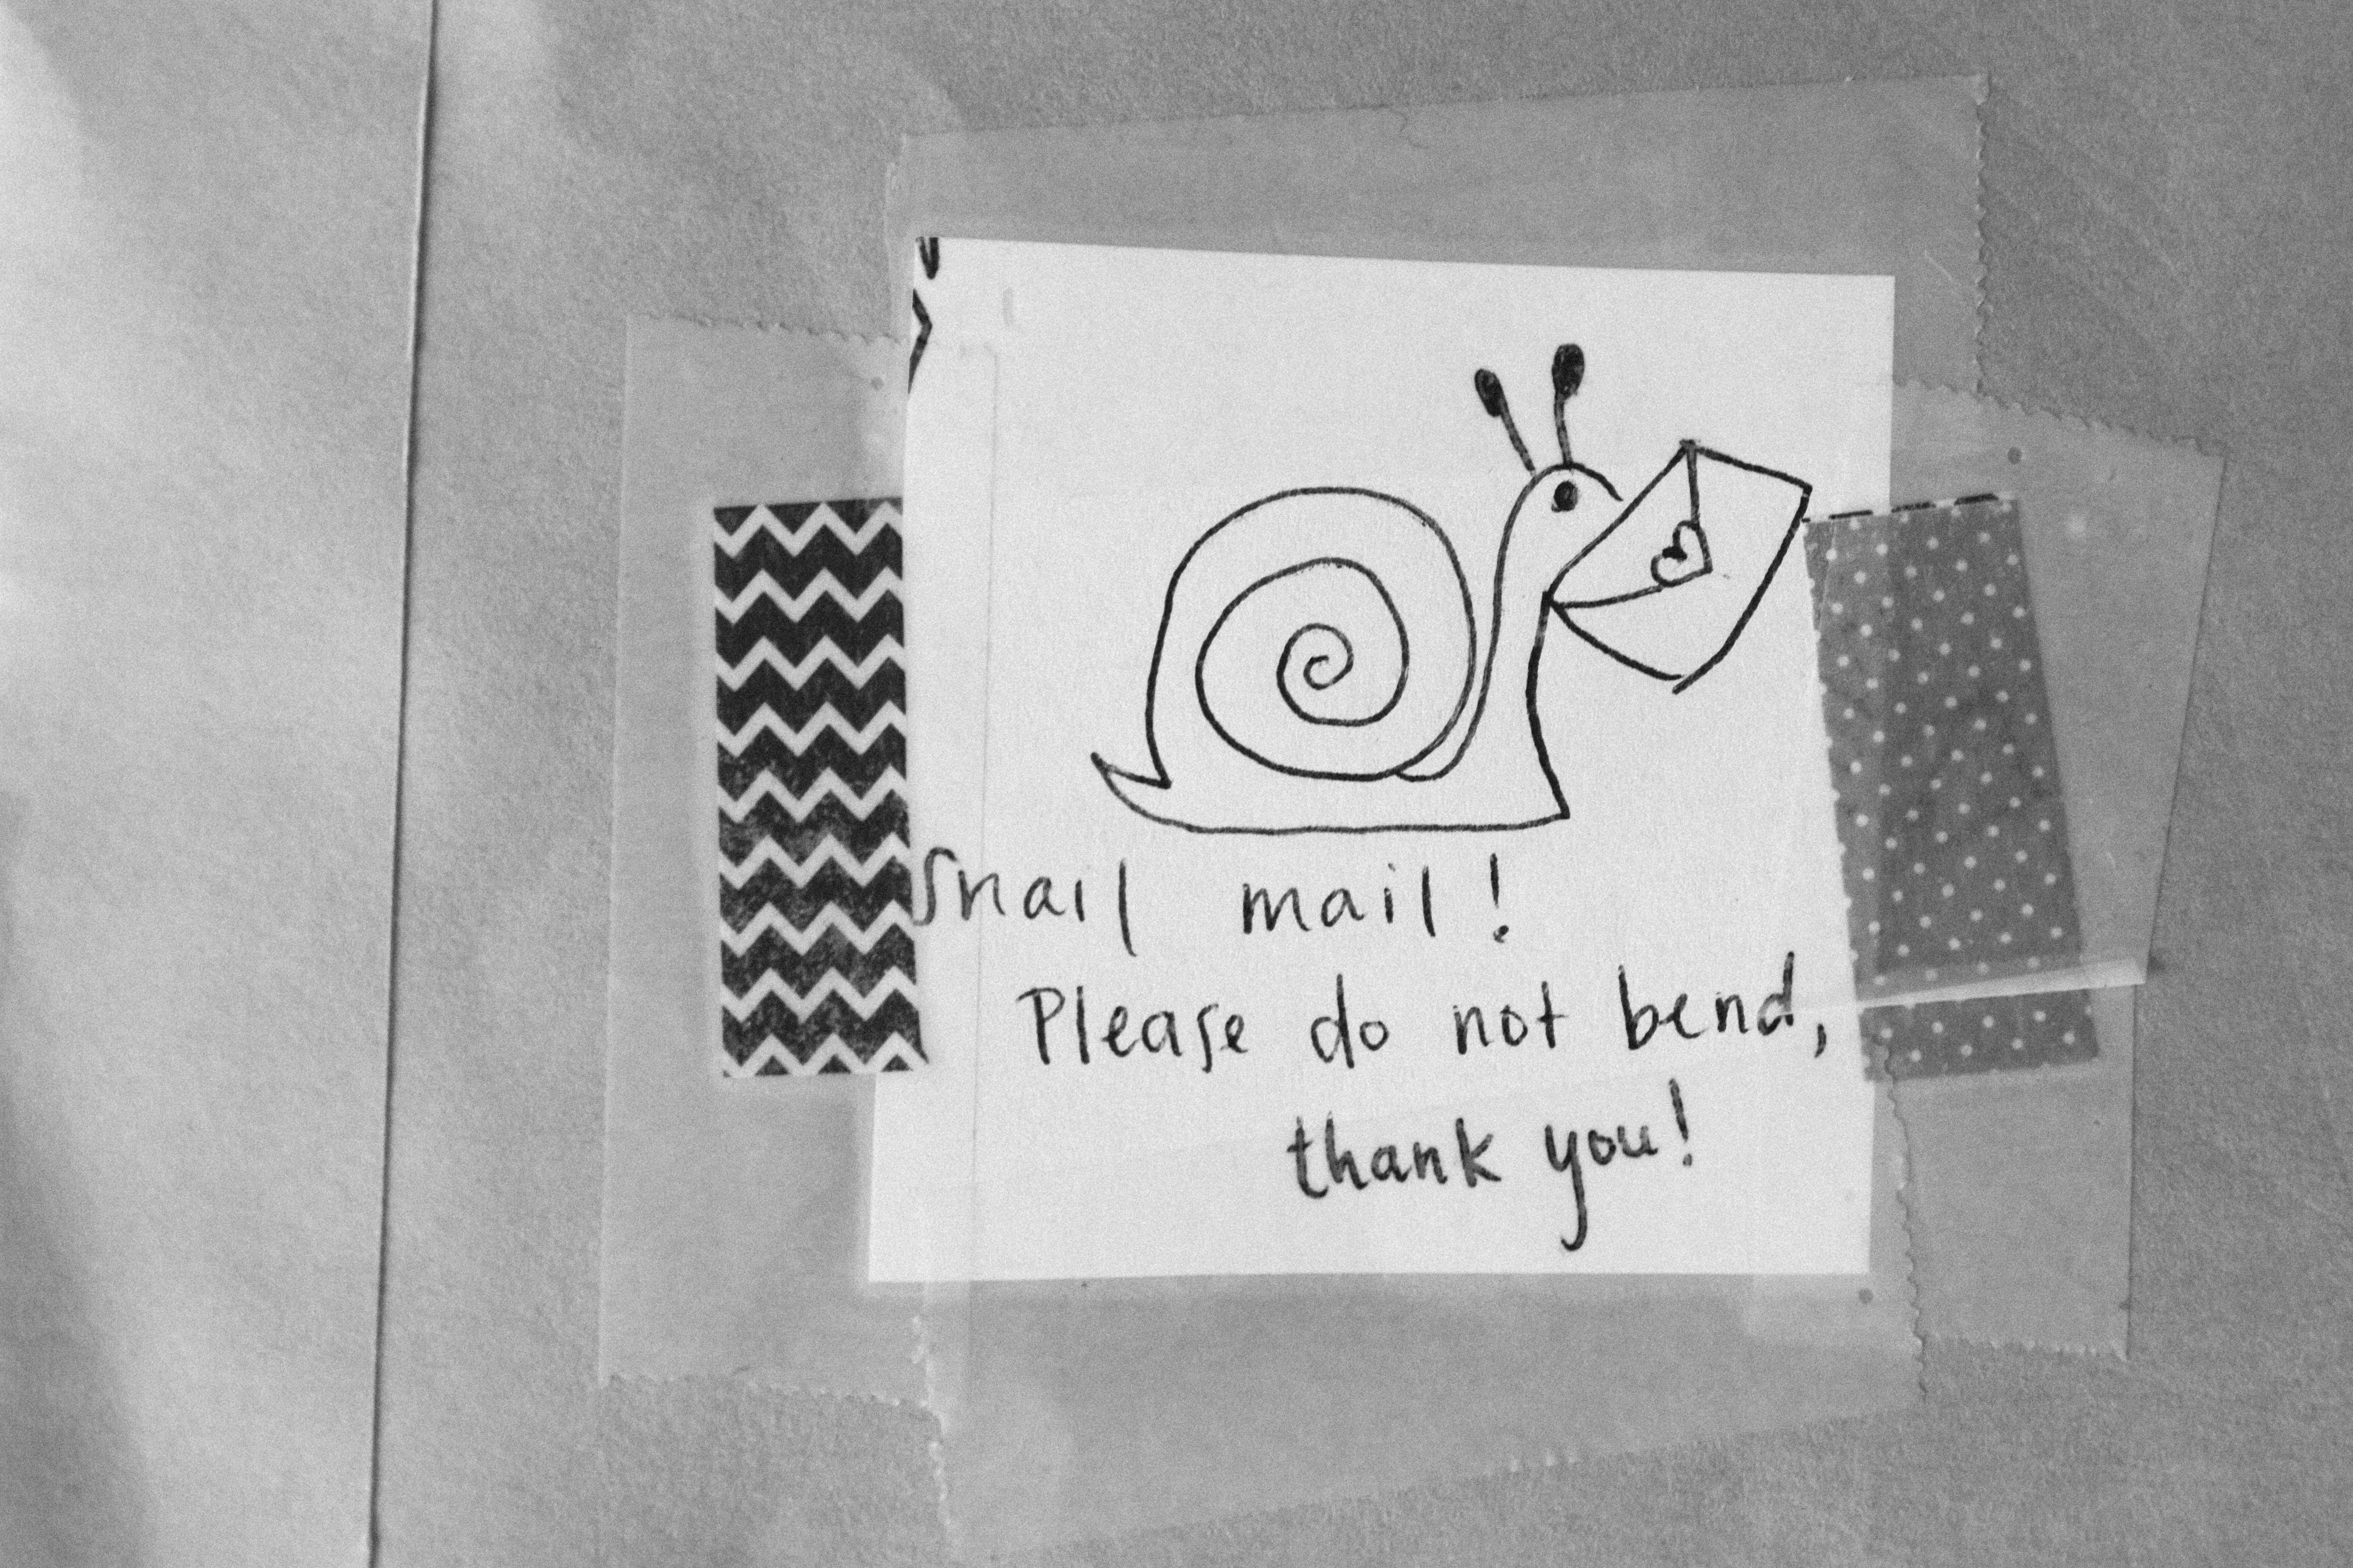 Snail mail!
Please do not bend,
thank you!